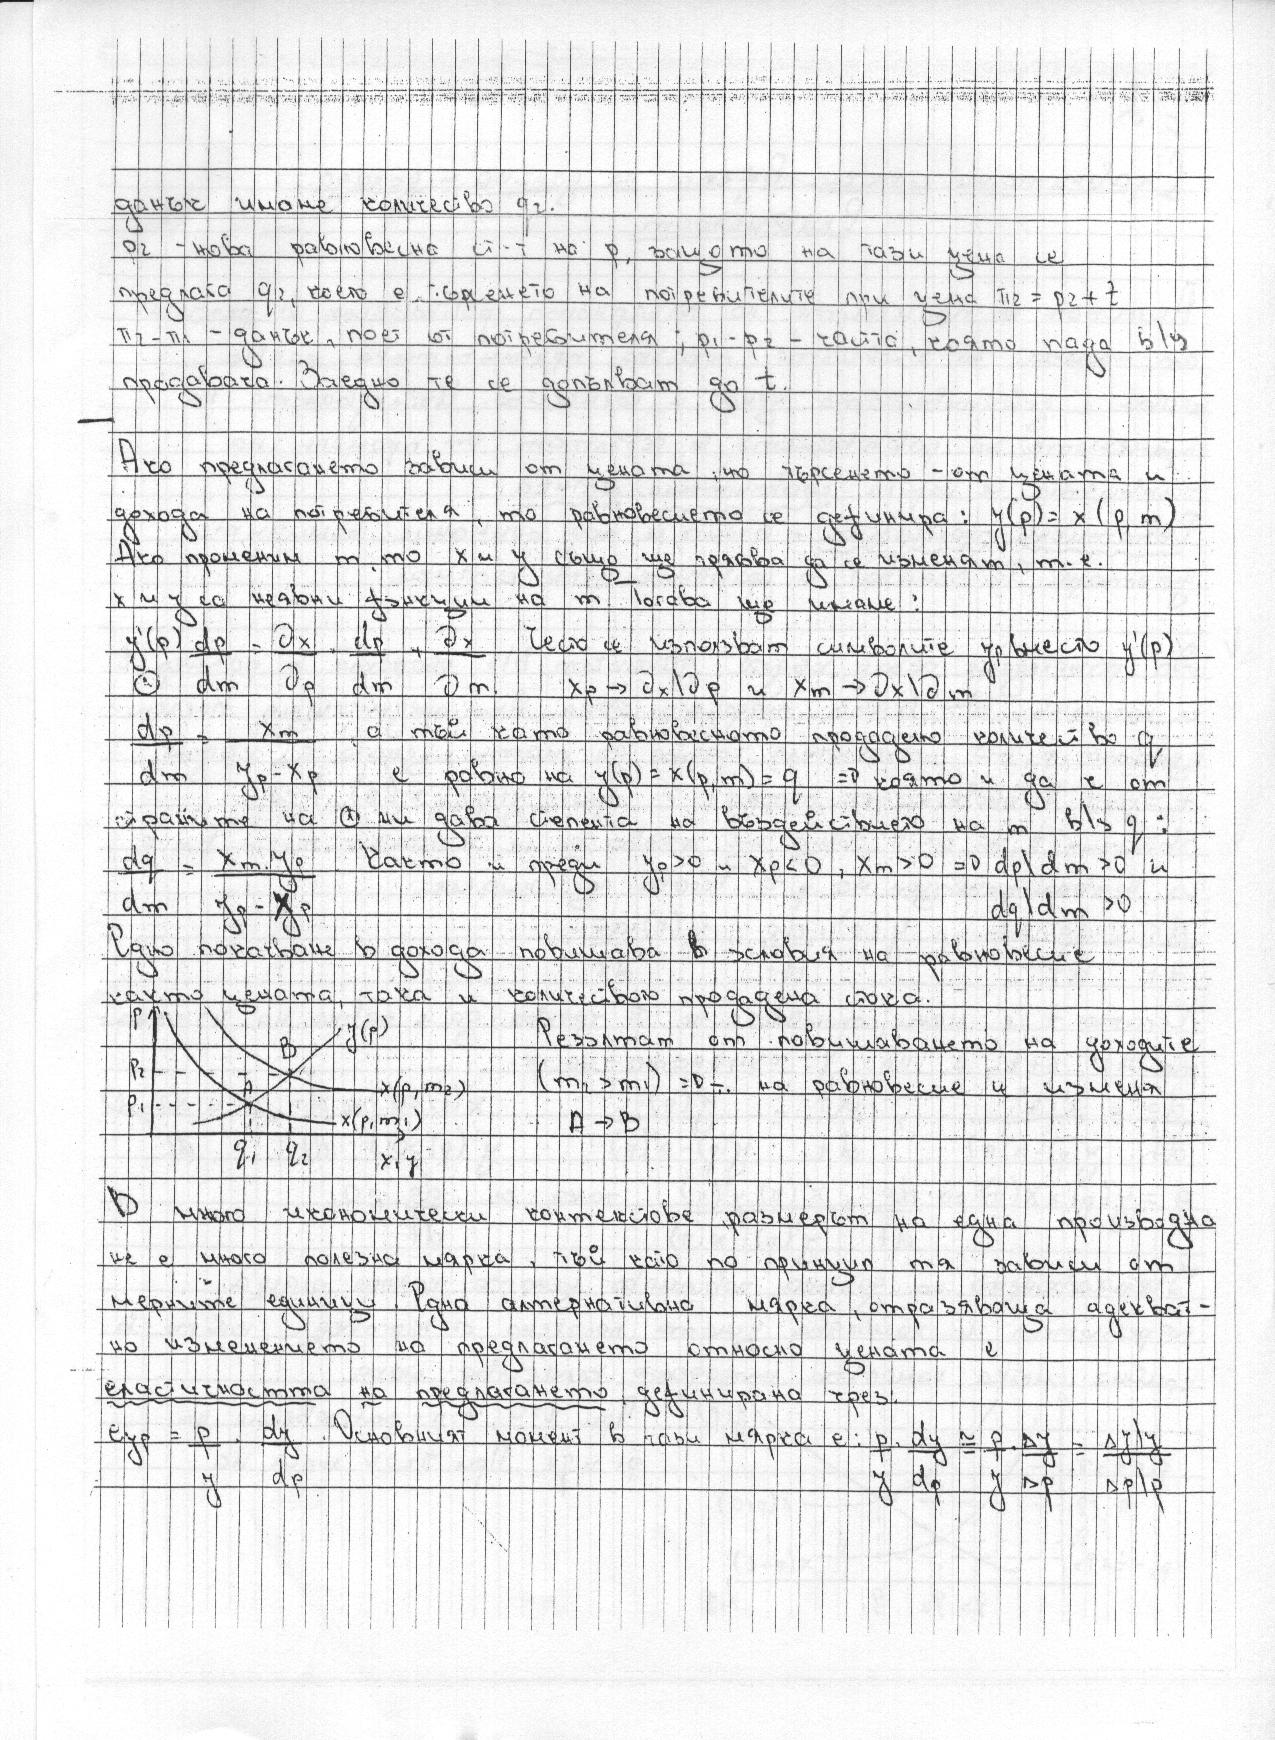 данък имаме количество q₂.
p₂ - нова равновесна ст-т на p, защото на тази цена се
предлага q₂, което е търсенето на потребителите при цена π₂ = p₂ + t
π₂ - π₁ - данък, поет от потребителя; p₁ - p₂ - частта, която пада в/у
продавача. Заедно те се допълват до t.
Ако предлагането зависи от цената, но търсенето - от цената и
дохода на потребителя, то равновесието се дефинира: y(p) = x(p, m)
Ако променим m, то x и y също ще трябва да се изменят, т.е.
x и y са неявни функции на m. Тогава ще имаме:
y'(p) dp/dm = ∂x/∂p . dp/dm + ∂x/∂m. Често се използват символите yp вместо y'(p)
⊛ xp → ∂x\∂p и xm → ∂x\∂m
dp/dm = xm/(yp - xp), а тъй като равновесното продадено количество q
е равно на y(p) = x(p, m) = q => която и да е от
страните на ⊛ ни дава степента на въздействието на m в/у q:
dq/dm = xm.yp/(yp - xp) Както и преди yp > 0 и xp < 0, xm > 0 => dp\dm > 0 и
dq\dm > 0
Едно покачване в дохода повишава в условия на равновесие
както цената, така и количеството продадена стока.
p y(p) Резултат от повишаването на доходите
p₂ B x(p, m₂) (m₂ > m₁) => т. на равновесие и изменя
p₁ A x(p, m₁) A → B
q₁ q₂ x, y
В много икономически контекстове размерът на една производна
не е много полезна мярка, тъй като по принцип тя зависи от
мерните единици. Една алтернативна мярка, отразяваща адекват-
но изменението на предлагането относно цената е
еластичността на предлагането, дефинирана чрез:
eyp = p/y . dy/dp. Основният момент в тази мярка е: p/y . dy/dp ≅ p/y . Δy/Δp = Δy\y / Δp\p